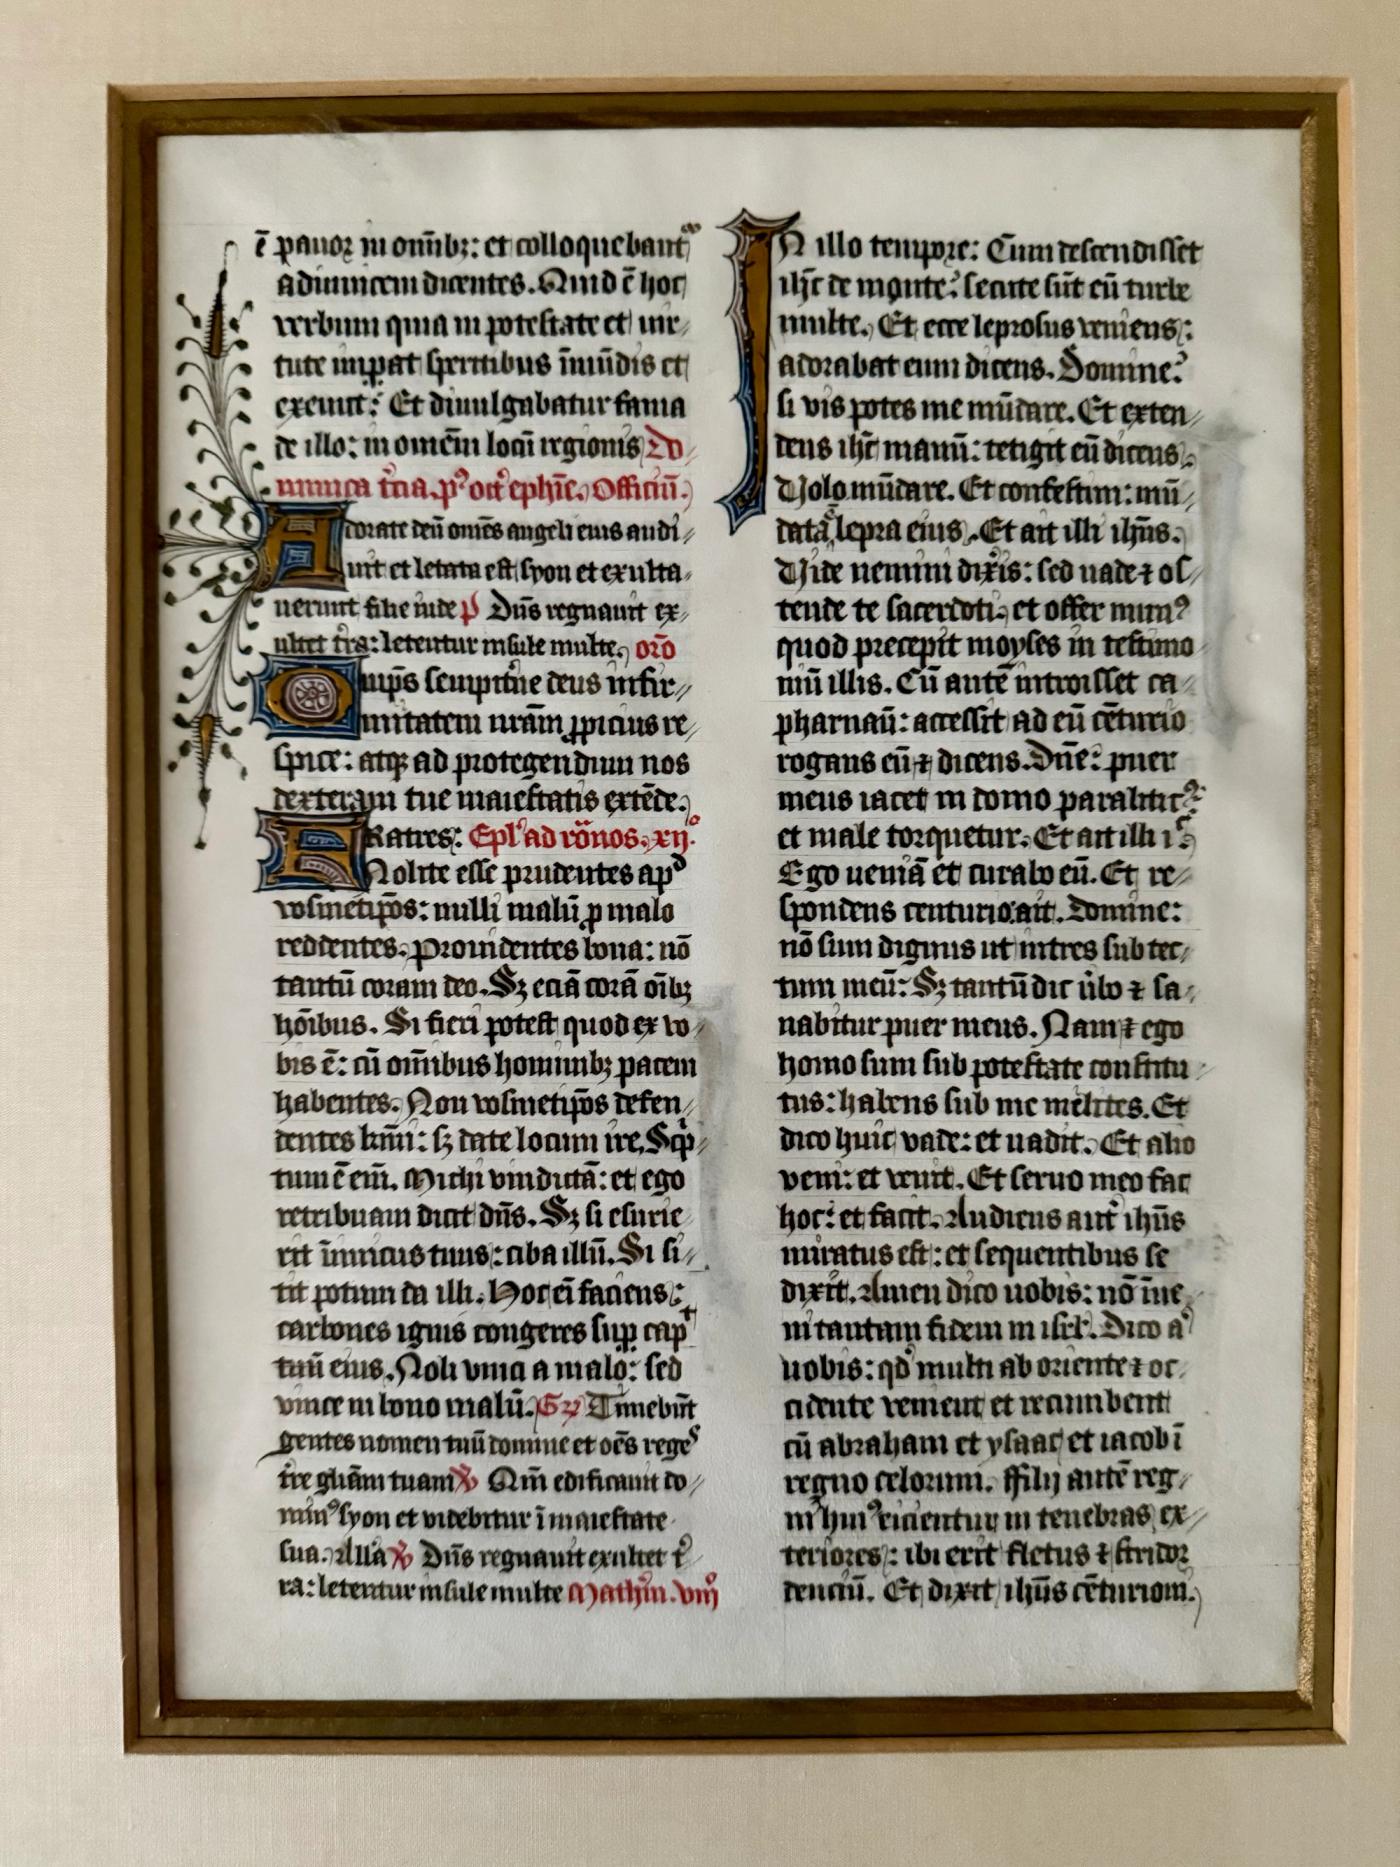 ē pauor in om̄ibꝫ: et colloquebant᷑
adinuicem dicentes. Quid ē hoc
verbum quia in potestate et vir⸗
tute imꝑat spiritibus īmūdis et
exeunt: Et diuulgabatur fama
de illo: in om̄em locū regionis Do⸗
minica t̓cia. p⁹ oct̄ ephīe. Officiū.
Adorate deū om̄es angeli eius audi⸗
uit et letata est syon et exulta⸗
uerunt filie iude p̄ Dn̄s regnauit ex⸗
ultet t̓ra: letentur insule multe. or̄o
Omīps sempit̓ne deus infir⸗
mitatem nr̄am ꝓpicius re⸗
spice: atqꝫ ad protegendum nos
dexteram tue maiestatis extēde.
FRatres: Epl̓ ad rōnos. xij.
Nolite esse prudentes apᵈ
vosmetip̄os: nulli malū ꝓ malo
reddentes. Prouidentes bona: nō
tantū coram deo. Sꝫ eciā corā oībꝫ
hōibus. Si fieri potest quod ex vo⸗
bis ē: cū om̄ibus hominibꝫ pacem
habentes. Non vosmetip̄os defen⸗
dentes km̄i: sꝫ date locum ire. Scp̄⸗
tum ē em̄. Michi vindictā: et ego
retribuam dicit dn̄s. Sꝫ si esurie⸗
rit īimicus tuus: ciba illū. Si si⸗
tit potum da illi. Hoc eī faciens:
carbones ignis congeres suꝑ cap⸗
tuū eius. Noli vinci a malo: sed
vince in bono malū. Gr̄ Timebūt
gentes nomen tuū domine et oēs reges
t̓re gliām tuam ℣ Qm̄ edificauit do⸗
min⁹ syon et videbitur ī maiestate
sua. All̓a ℣ Dn̄s regnauit exultet t̓⸗
ra: letentur insule multe Mathm̄. viijᵒ
IN illo tempore: Cum descendisset
ihc̄ de monte: secute sūt eū turbe
multe. Et ecce leprosus veniens:
adorabat eum dicens. Domine:
si vis potes me mūdare. Et exten⸗
dens ihc̄ manū: tetigit eū dicens.
Uolo mūdare. Et confestim: mū⸗
data ē lepra eius. Et ait illi ihūs.
Uide nemini dix̓is: sed uade ⁊ os⸗
tende te sacerdoti, et offer mun⁹
quod precepit moyses in testimo
niū illis. Cū autē introisset ca⸗
pharnaū: accessit ad eū cēturio
rogans eū ⁊ dicens. Dn̄e: puer
meus iacet in domo paralitic⁹:
et male torquetur. Et ait illi ic̄
Ego ueniā et curabo eū. Et re⸗
spondens centurio: ait. Domine:
nō sum dignus ut intres sub tec⸗
tum meū: Sꝫ tantū dic ūbo ⁊ sa⸗
nabitur puer meus. Nam ⁊ ego
homo sum sub potestate constitu
tus: habens sub me milites. Et
dico huic vade: et uadit. Et alio
veni: et venit. Et seruo meo fac
hoc: et facit. Audiens aut̄ ihūs
miratus est: et sequentibus se
dixit. Amen dico uobis: nō īue⸗
ni tantam fidem in isrl̓. Dico a⁹
uobis: qd̓ multi ab oriente ⁊ oc⸗
cidente venient et recumbent
cū abraham et ysaac et iacob ī
regno celorum. ffilij autē reg⸗
ni hui⁹ eicientur in tenebras ex⸗
teriores: ibi erit fletus ⁊ stridor
denciū. Et dixit ihūs cēturioni.